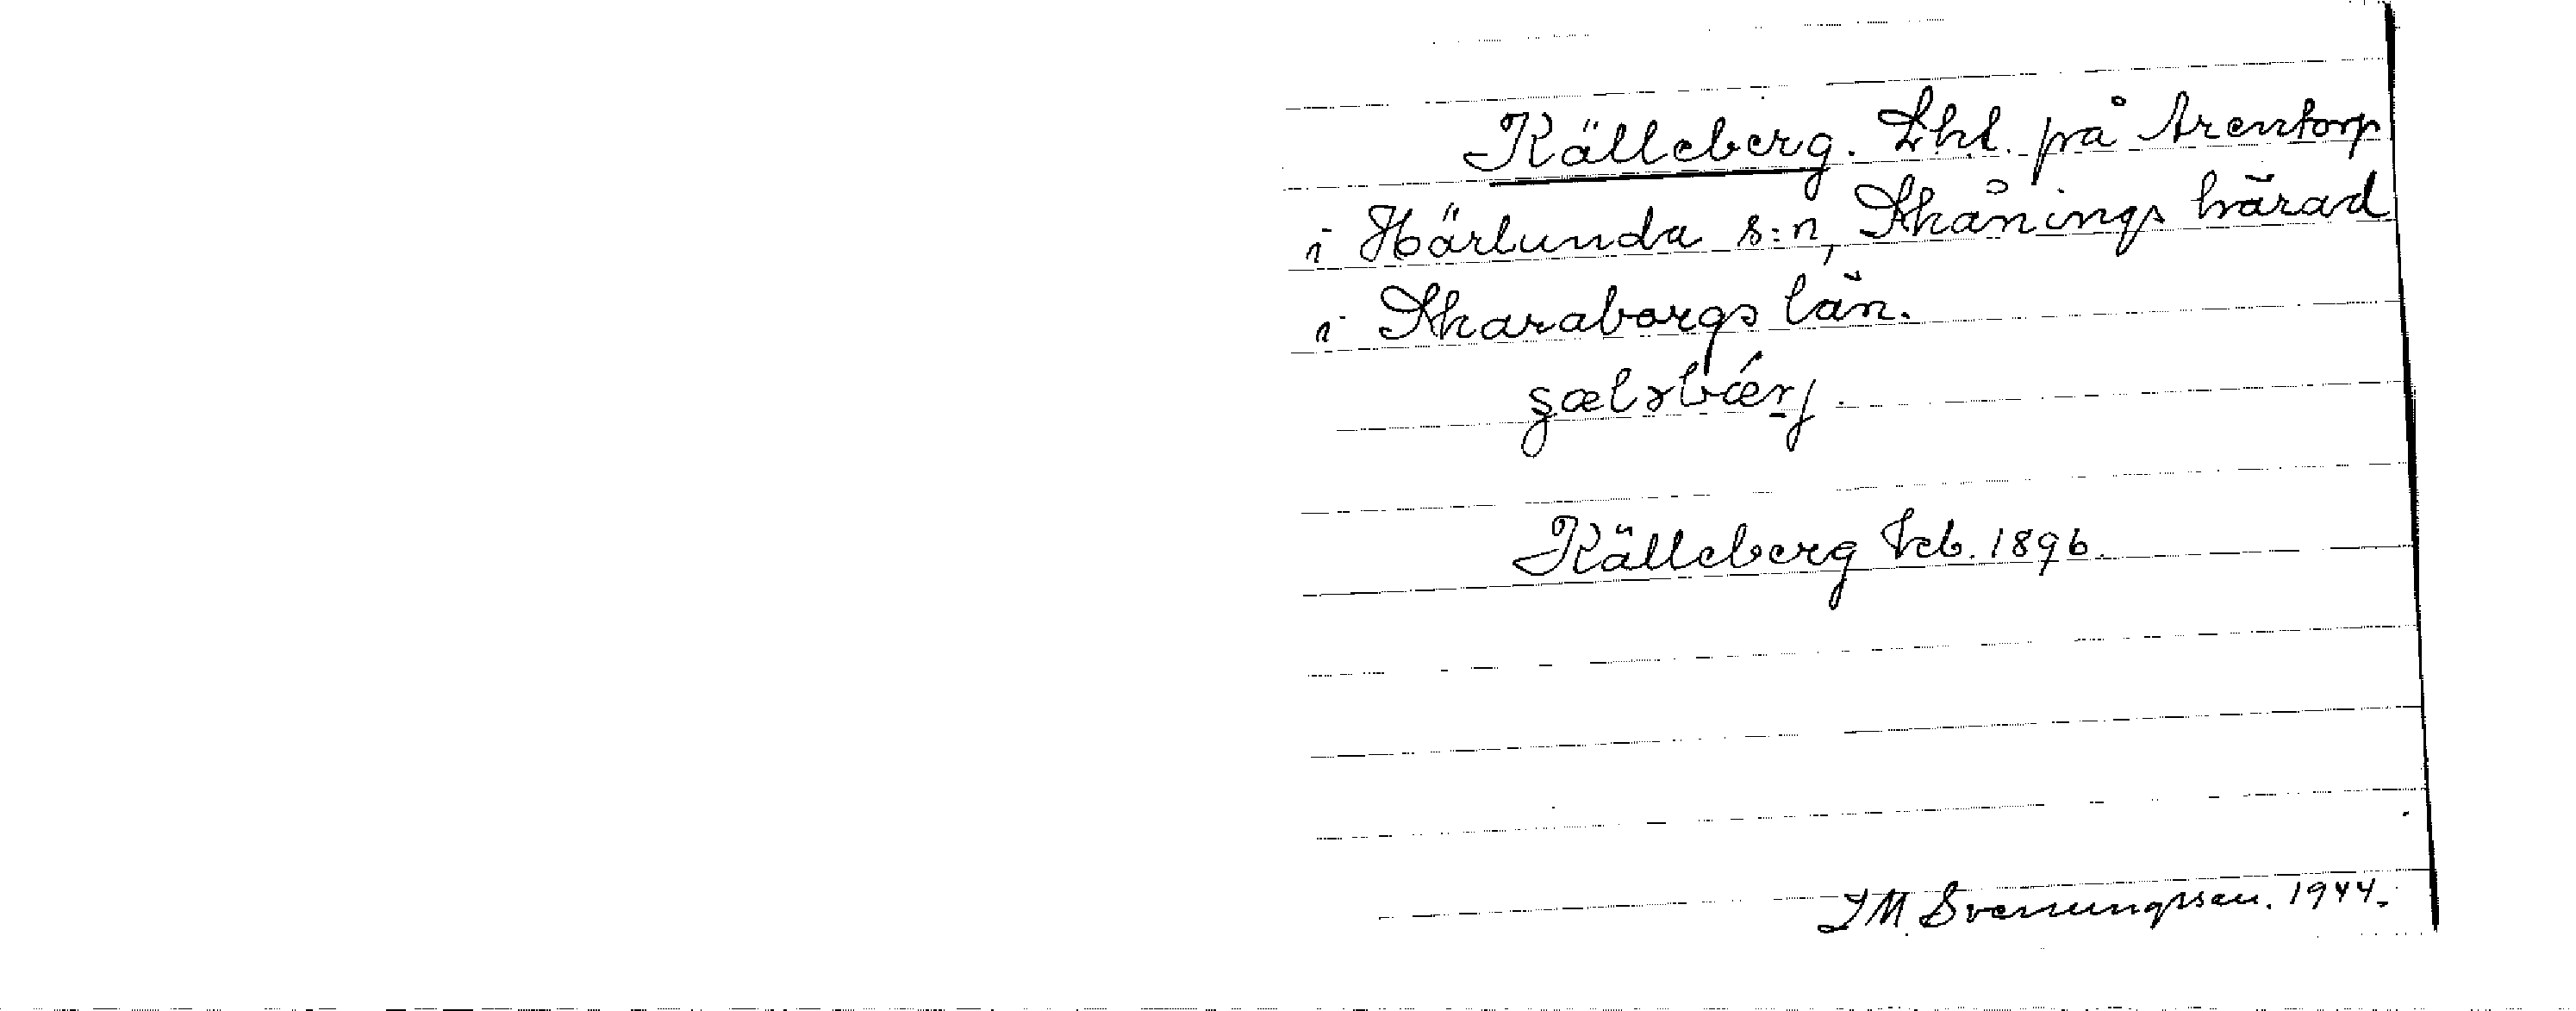 Källeberg. Lht. på Arentorp
i Härlunda s:n, Skånings härad
i Skaraborgs län.
Källeberg Feb. 1896.
I M. Svenungsson. 1944.